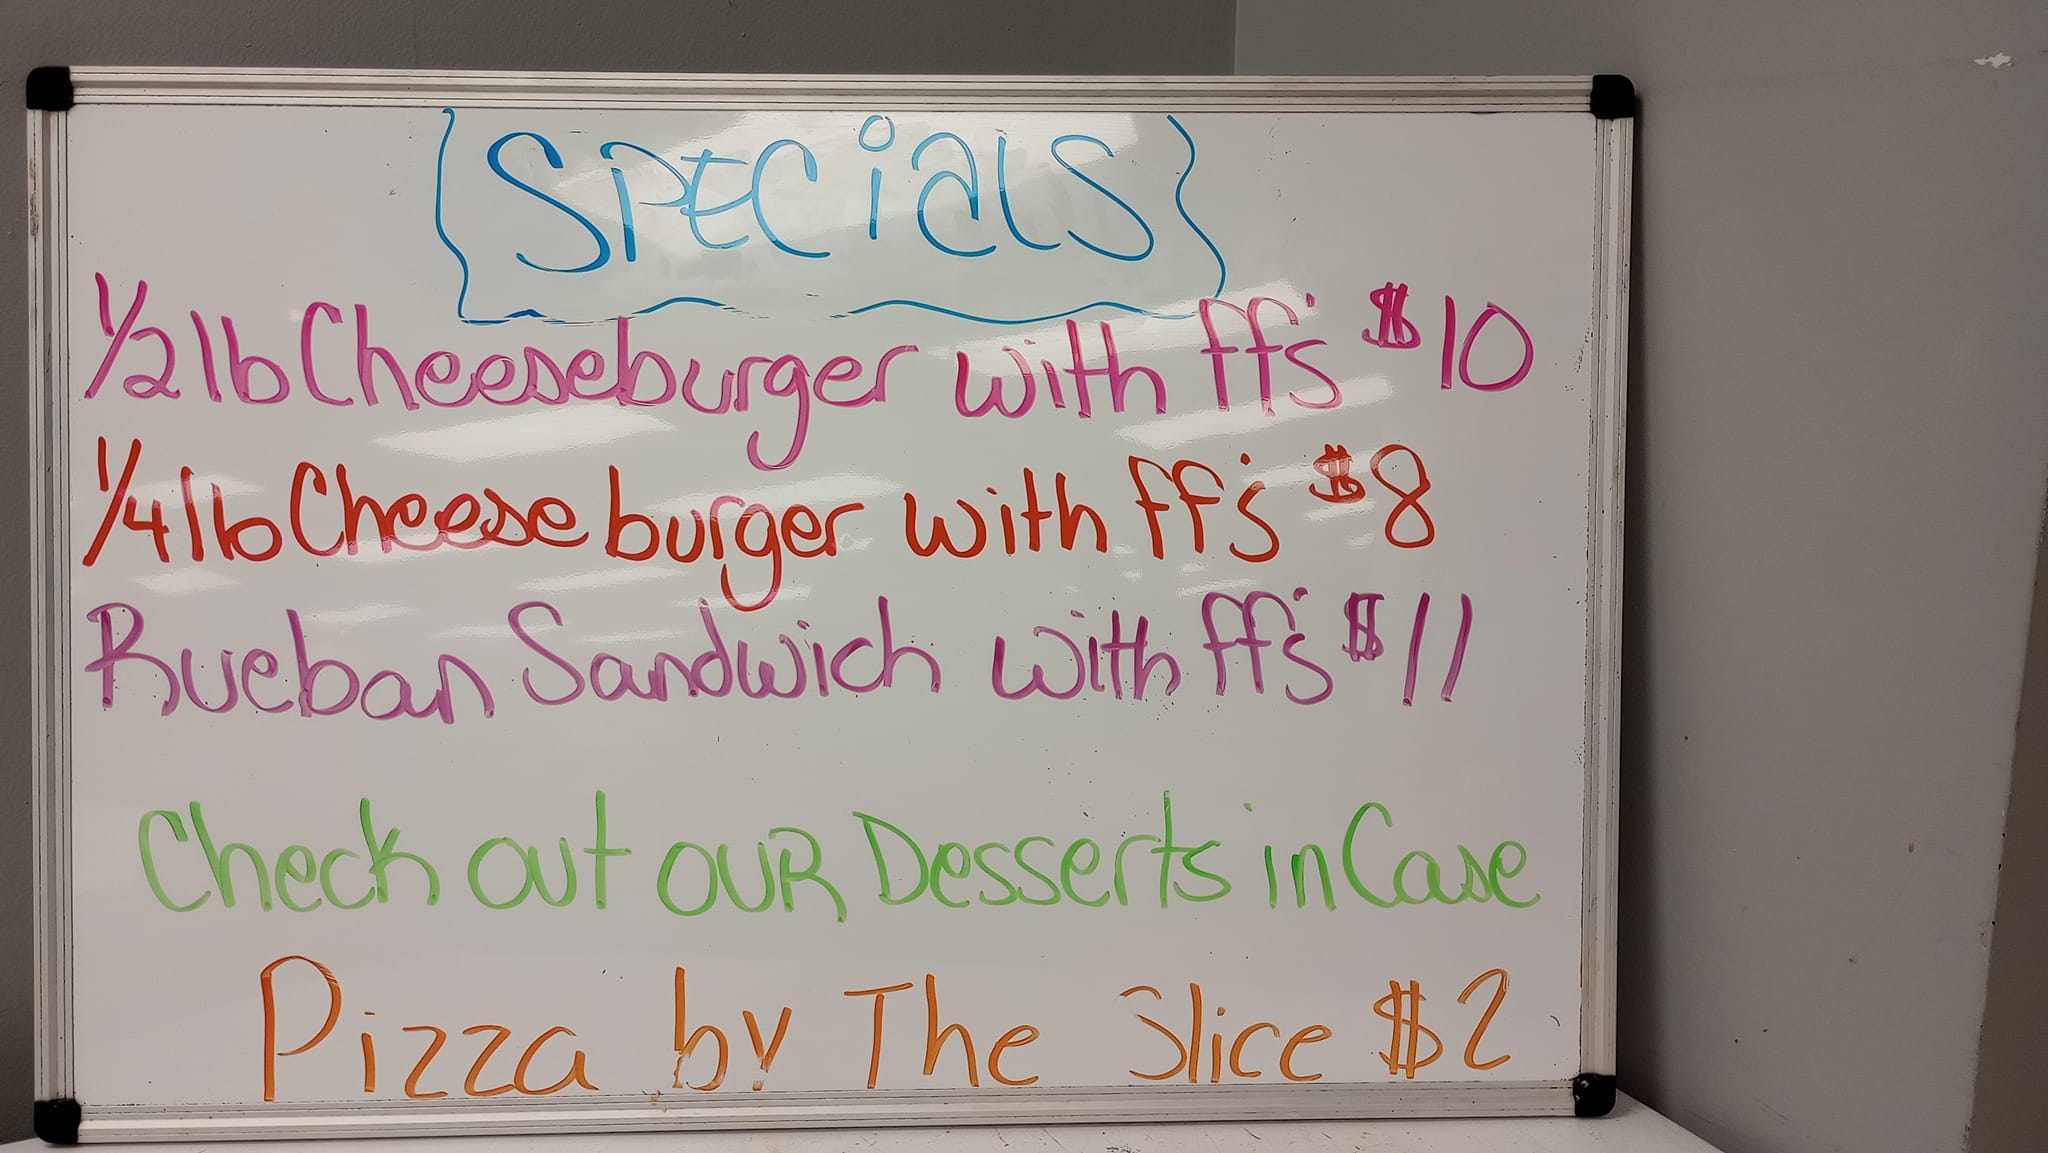 Specials
1/2 lb Cheeseburger with ff's $10
1/4 lb Cheese burger with ff's $8
Rueban Sandwich with ff's $11
Check out our Desserts in Case
Pizza by The Slice $2